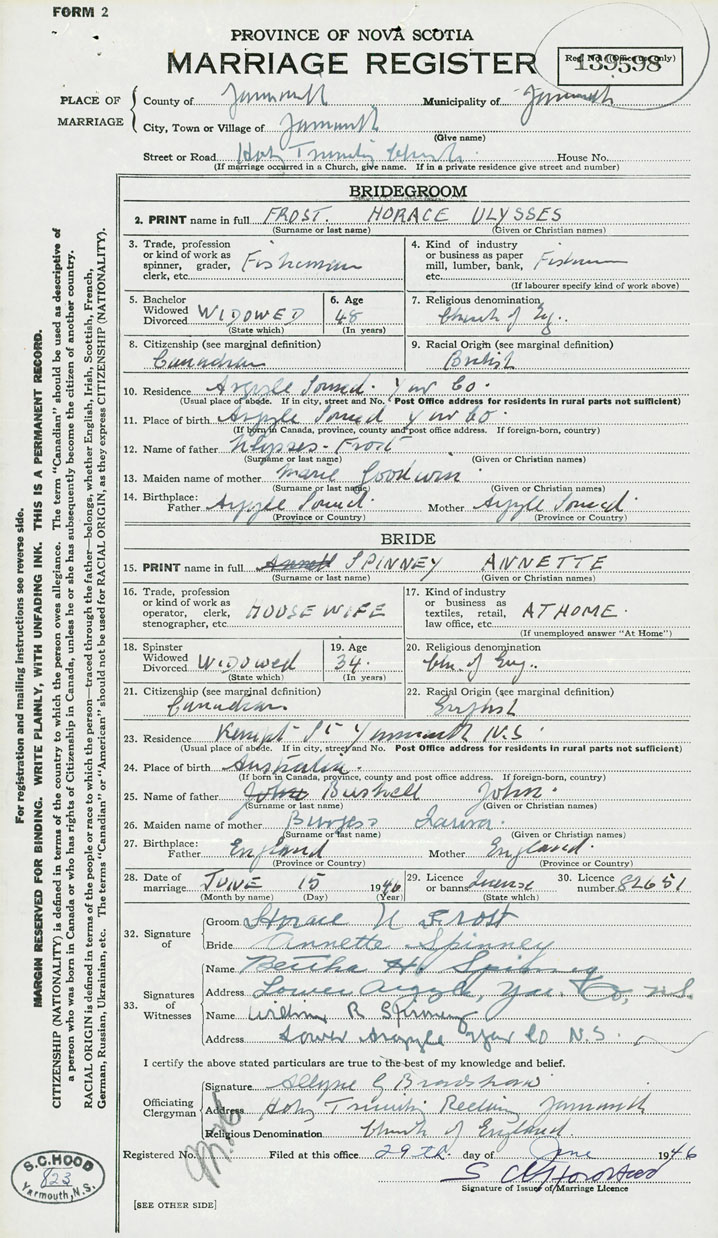 FORM 2
PROVINCE OF NOVA SCOTIA
MARRIAGE REGISTER
Reg. No. (Office use only)
139598
PLACE OF MARRIAGE
County of Yarmouth Municipality of Yarmouth
City, Town or Village of Yarmouth
(Give name)
Street or Road Holy Trinity Church House No.
(If marriage occurred in a Church, give name. If in a private residence give street and number)
BRIDEGROOM
2. PRINT name in full FROST. HORACE ULYSSES
(Surname or last name) (Given or Christian names)
3. Trade, profession or kind of work as spinner, grader, clerk, etc. Fisherman
4. Kind of industry or business as paper mill, lumber, bank, etc.
(If labourer specify kind of work above)
5. Bachelor Widowed Divorced WIDOWED
(State which)
6. Age 48
(In years)
7. Religious denomination Church of Eng.
8. Citizenship (see marginal definition)
Canadian
9. Racial Origin (see marginal definition)
British
10. Residence Argyle Sound. Yar Co.
(Usual place of abode. If in city, street and No. Post Office address for residents in rural parts not sufficient)
11. Place of birth Argyle Sound Yar Co.
(If born in Canada, province, county and post office address. If foreign-born, country)
12. Name of father Ulysses Frost
(Surname or last name) (Given or Christian names)
13. Maiden name of mother Marie Goodwin
(Surname or last name) (Given or Christian names)
14. Birthplace:
Father Argyle Sound. Mother Argyle Sound
(Province or Country) (Province or Country)
BRIDE
15. PRINT name in full SPINNEY ANNETTE
(Surname or last name) (Given or Christian names)
16. Trade, profession or kind of work as operator, clerk, stenographer, etc. HOUSEWIFE
17. Kind of industry or business as textiles, retail, law office, etc. AT HOME.
(If unemployed answer "At Home")
18. Spinster Widowed Divorced WIDOWED
(State which)
19. Age 34.
(In years)
20. Religious denomination
Ch. of Eng.
21. Citizenship (see marginal definition)
Canadian
22. Racial Origin (see marginal definition)
English
23. Residence Kempt St Yarmouth N.S.
(Usual place of abode. If in city, street and No. Post Office address for residents in rural parts not sufficient)
24. Place of birth Australia.
(If born in Canada, province, county and post office address. If foreign-born, country)
25. Name of father John Bushell John.
(Surname or last name) (Given or Christian names)
26. Maiden name of mother Burgess
(Surname or last name) (Given or Christian names)
27. Birthplace:
Father England Mother England.
(Province or Country) (Province or Country)
28. Date of marriage JUNE 15 1946
(Month by name) (Day) (Year)
29. Licence or banns License
(State which)
30. Licence number 82651
32. Signature of
Groom Horace U Frost
Bride Annette Spinney
33. Signatures of Witnesses
Name Bertha H. Spinney
Address Lower Argyle, Yar. Co, N.S.
Name William R Spinney
Address Lower Argyle Yar Co N.S.
I certify the above stated particulars are true to the best of my knowledge and belief.
Officiating Clergyman
Signature Allyne G Bradshaw
Address Holy Trinity Rectory Yarmouth
Religious Denomination Church of England.
Registered No. Filed at this office 29th. day of June 1946
Signature of Issuer of Marriage Licence
[SEE OTHER SIDE]
S.C. HOOD
823
Yarmouth, N.S.
For registration and mailing instructions see reverse side.
MARGIN RESERVED FOR BINDING. WRITE PLAINLY, WITH UNFADING INK. THIS IS A PERMANENT RECORD.
CITIZENSHIP (NATIONALITY) is defined in terms of the country to which the person owes allegiance. The term "Canadian" should be used as descriptive of
a person who was born in Canada or who has rights of Citizenship in Canada, unless he or she has subsequently become the citizen of another country.
RACIAL ORIGIN is defined in terms of the people or race to which the person—traced through the father—belongs, whether English, Irish, Scottish, French,
German, Russian, Ukrainian, etc. The terms "Canadian" or "American" should not be used for RACIAL ORIGIN, as they express CITIZENSHIP (NATIONALITY).